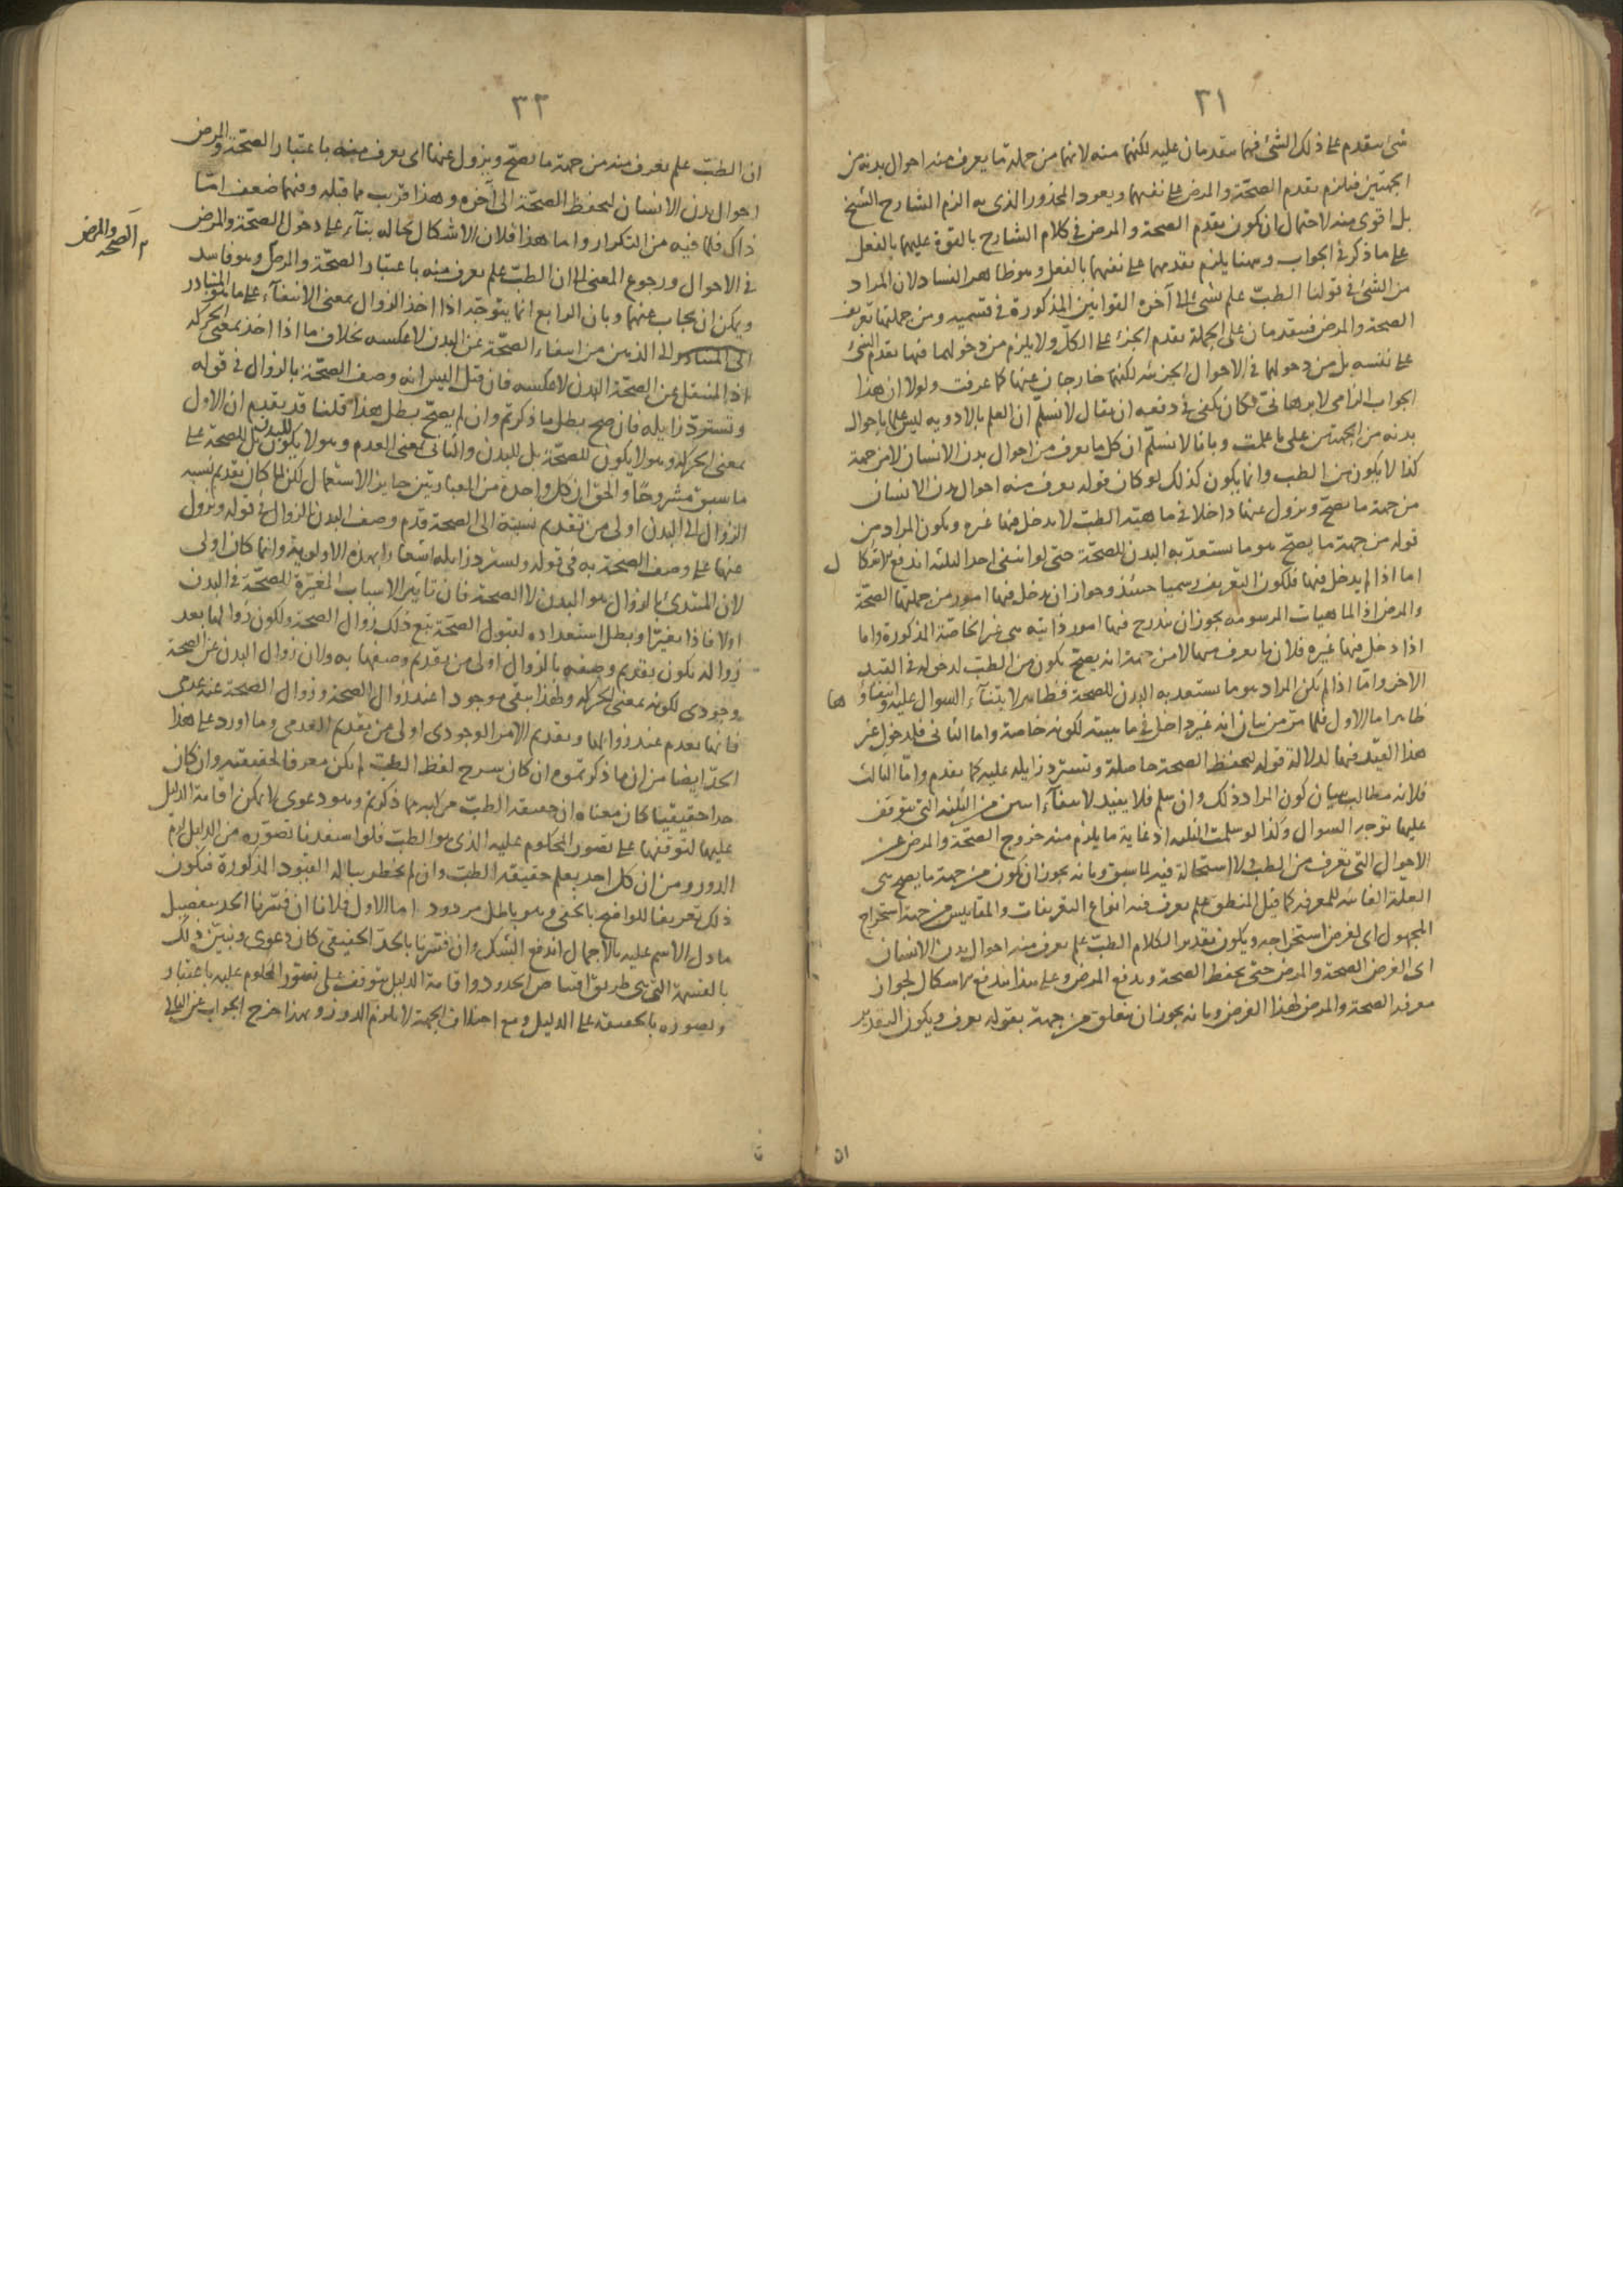 ٣١
شئ يتقدم على ذلك الشئ فهما متقدمان عليه لكنهما منه لانهما من جملة ما يعرف منه احوال بدنه من
الجهتين فيلزم تقدم الصحة والمرض على نفسهما ويعود المحذور الذى به الزم الشارح الشيخ
بل اقوى منه لاحتمال ان يكون تقدم الصحة والمرض فى كلام الشارح بالقوة عليهما بالفعل
على ما ذكر فى الجواب وههنا يلزم تقدمهما على نفسهما بالفعل وهو ظاهر الفساد لان المراد
من الشئ فى قولنا الطب علم بشئ الى آخره القوانين المذكورة فى قسميه ومن جملتها تعريف
الصحة والمرض فيتقدمان على الجملة تقدم الجزء على الكل ولا يلزم من دخولهما فيها تقدم الشئ
على نفسه بل من دخولهما فى الاحوال الجزئية لكنهما خارجان عنها كما عرفت ولولا ان هذا
الجواب الزامى لا برهانى لكان يكفى فى دفعه ان يقال لا نسلم ان العلم بالادوية ليس علما باحوال
بدنه من الجهتين على ما علمت وبانا لا نسلم ان كل ما يعرف من احوال بدن الانسان لا من جهة
كذا لا يكون من الطب وانما يكون كذلك لو كان قوله يعرف منه احوال بدن الانسان
من جهة ما يصح ويزول عنها داخلا فى ماهية الطب لا يدخل فيها غيره ويكون المراد من
قوله من جهة ما يصح هو ما يستعد به البدن للصحة حتى لو انتفى احد الثلثة اندفع الاشكال
اما اذا لم يدخل فيها فلكون التعريف رسميا حينئذ وجواز ان يدخل فيها امور من جملتها الصحة
والمرض اذ الماهيات المرسومة يجوز ان يندرج فيها امور ذاتية هى غير الخاصة المذكورة واما
اذا دخل فيها غيره فلان ما يعرف منها لا من جهة انه يصح يكون من الطب لدخوله فى القيد
الاخر واما اذا لم يكن المراد هو ما يستعد به البدن للصحة فظاهر لابتناء السوال عليه وانتفاؤها
ظاهر اما الاول فلما مر من بيان انه غير داخل فى ماهيته لكونه خاصة واما الثانى فلدخول غير
هذا القيد فيها لدلالة قوله لتحفظ الصحة حاصلة وتسترد زايلة عليه كما تقدم واما الثالث
فلانه مطالب ببيان كون المراد ذلك وان سلم فلا يفيد لانتفاء اثنين من الثلثة التى يتوقف
عليها توجيه السوال وكذا لو سلمت الثلثة اذ غاية ما يلزم منه خروج الصحة والمرض عن
الاحوال التى تعرف من الطب ولا استحالة فيه لما سبق وبانه يجوز ان يكون من جهة ما يصح هى
العلة الغائية للمعرفة كما قيل المنطق علم يعرف فيه انواع التعريفات والمقاييس من جهة استخراج
المجهول اى لغرض استخراجه ويكون تقدير الكلام الطب علم يعرف منه احوال بدن الانسان
اى الغرض الصحة والمرض حتى يحفظ الصحة ويدفع المرض وعلى هذا يندفع الاشكال لجواز
معرفة الصحة والمرض لهذا الغرض وبانه يجوز ان يتعلق من جهة بقوله يعرف ويكون التقدير
ان
٣٢
ان الطب علم يعرف منه من جهة ما يصح ويزول عنها اى يعرف منه باعتبار الصحة والمرض
احوال بدن الانسان لتحفظ الصحة الى آخره وهذا قريب مما قبله وفيهما ضعف اما
ذاك فلما فيه من التكرار واما هذا فلان الاشكال بحاله بناء على دخول الصحة والمرض
فى الاحوال ورجوع المعنى الى ان الطب علم يعرف منه باعتبار الصحة والمرض وهو فاسد
الصحة والمرض
ويمكن ان يجاب عنهما وبان الرابع انما يتوجه اذا اخذ الزوال بمعنى الانتفاء على ما هو المتبادر
الى الذهن من انتفاء الصحة عن البدن لا عكسه بخلاف ما اذا اخذ بمعنى الحركة
اذ المنتقل عن الصحة البدن لا عكسه فان قيل اليس انه وصف الصحة بالزوال فى قوله
وتسترد زايلة فان صح بطل ما ذكرتم وان لم يصح بطل هذا قلنا قد تقدم ان الاول
بمعنى الحركة وهو لا يكون للصحة بل للبدن والثانى بمعنى العدم وهو لا يكون للبدن بل للصحة على
ما سبق مشروحا والحق ان كل واحدة من العبارتين جايز الاستعمال لكن لما كان تقديم نسبة
الزوال الى البدن اولى من تقديم نسبته الى الصحة قدم وصف البدن بالزوال فى قوله ويزول
عنها على وصف الصحة به فى قوله وتسترد زايلة اشعارا بهذه الاولوية وانما كان اولى
لان المبتدئ بالزوال هو البدن لا الصحة فان تاثير الاسباب المغيرة للصحة فى البدن
اولا فاذا تغير او بطل استعداده لقبول الصحة تبع ذلك زوال الصحة ولكون زوالها بعد
زواله يكون تقديم وصفه بالزوال اولى من تقديم وصفها به ولان زوال البدن عن الصحة
وجودى لكونه بمعنى الحركة ولهذا يبقى موجودا عند زوال الصحة وزوال الصحة عنه عدمى
فانها تعدم عند زوالها وتقديم الامر الوجودى اولى من تقديم العدمى وما اورد على هذا
الحد ايضا من ان ما ذكرتموه ان كان شرح لفظ الطب لم يكن معرفا لحقيقته وان كان
حدا حقيقيا كان معناه ان حقيقة الطب مركبة مما ذكرتم وهو دعوى لا يمكن اقامة الدليل
عليها لتوقفها على تصور المحكوم عليه الذى هو الطب فلو استفدنا تصوره من الدليل لزم
الدور ومن ان كل احد يعلم حقيقة الطب وان لم يخطر بباله القيود المذكورة فيكون
ذلك تعريفا للواضح بالخفى وهو باطل مردود اما الاول فلانا ان فسرنا الحد بتفصيل
ما دل الاسم عليه بالاجمال اندفع الشك وان فسرنا بالحد الحقيقى كان دعوى ونبين ذلك
بالقسمة التى هى طريق اقتناص الحدود واقامة الدليل يتوقف على تصور المحكوم عليه باعتبار
وتصوره بالحقيقة على الدليل ومع اختلاف الجهة لا يلزم الدور وبهذا خرج الجواب عن الثانى